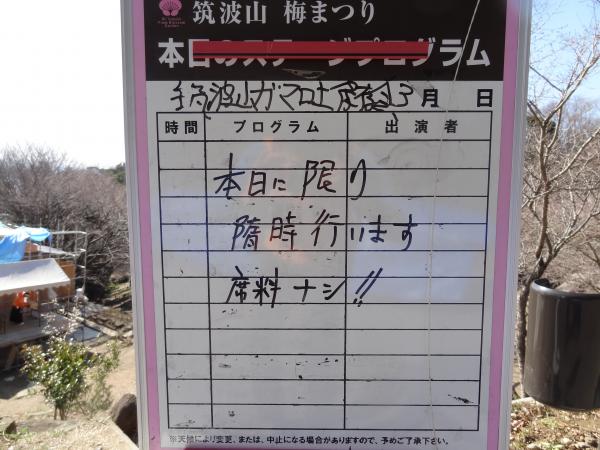 筑波山 梅まつり
本日のステージプログラム
筑波山ガマ口上 月 日
時間 プログラム 出演者
本日に限り
随時行います
席料ナシ!!
※天候により変更、または、中止になる場合がありますので、予めご了承下さい。